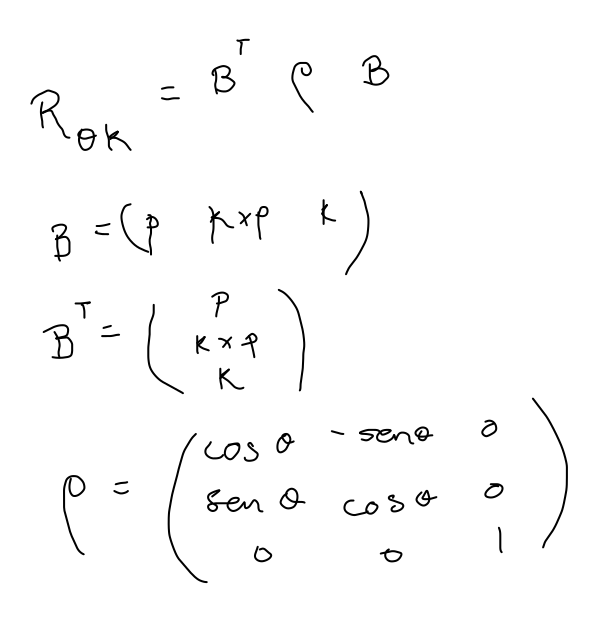 R_θk = B^T ρ B
B = (p k×p k)
B^T = ( p
k×p
k )
ρ = ( cos θ - sen θ 0
sen θ cos θ 0
0 0 1 )